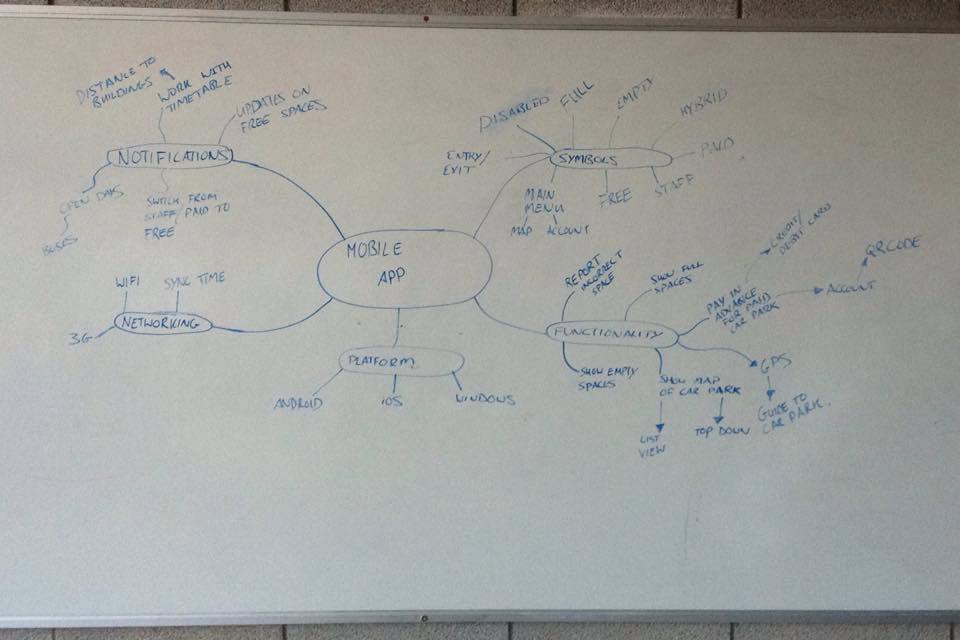 DISTANCE TO
BUILDINGS
WORK WITH
TIMETABLE
UPDATES ON
FREE SPACES
NOTIFICATIONS
OPEN DAYS
BUSES
SWITCH FROM
STAFF PAID TO
FREE
DISABLED
FULL
EMPTY
HYBRID
PAID
STAFF
FREE
ENTRY/
EXIT
SYMBOLS
MAIN
MENU
MAP
ACCOUNT
MOBILE
APP
WIFI
SYNC TIME
NETWORKING
3G
PLATFORM
ANDROID
iOS
WINDOWS
REPORT
INCORRECT
SPACE
SHOW FULL
SPACES
FUNCTIONALITY
PAY IN
ADVANCE
FOR PAID
CAR PARK
CREDIT/
DEBIT CARD
ACCOUNT
QR CODE
SHOW EMPTY
SPACES
SHOW MAP
OF CAR PARK
LIST
VIEW
TOP DOWN
GPS
GUIDE TO
CAR PARK.